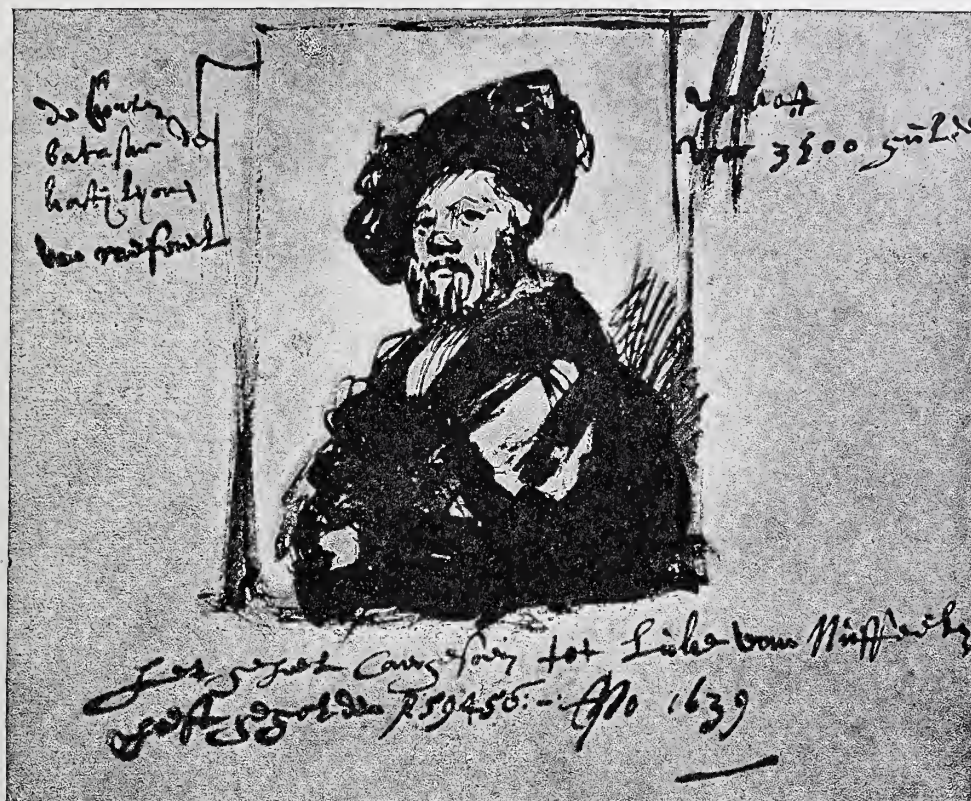 de Conte
batasar de
kastijlyone
van rafael
verkoft
voor 3500 gulde
het geheel Caergesoen tot Luke van Nuffeelen
heeft gegolden f 59456:- Ano 1639